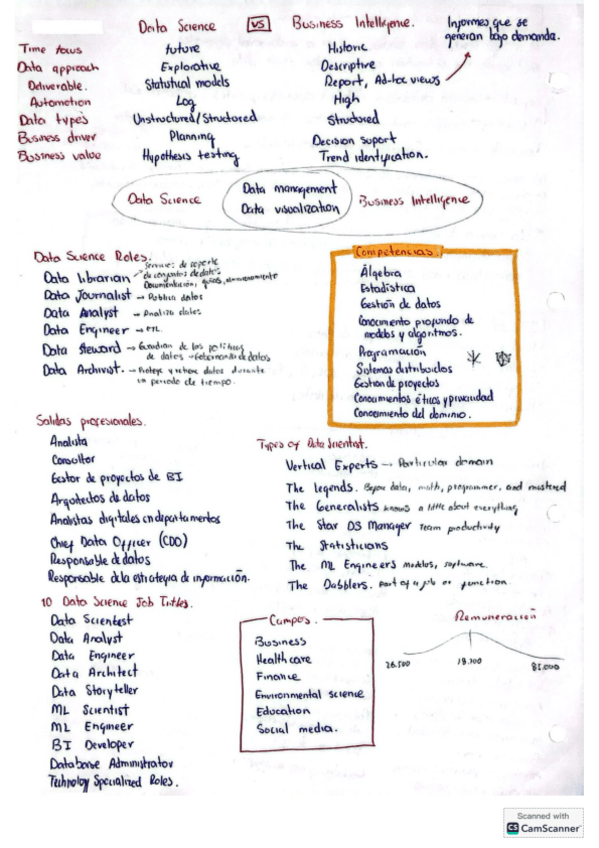 Data Science VS Business Intelligence.
Informes que se
generan bajo demanda.
Time focus future Historic
Data approach Explorative Descriptive
Deliverable. Statistical models Report, Ad-hoc views
Automation Log High
Data types Unstructured/Structured Structured
Business driver Planning Decision suport
Business value Hypothesis testing Trend identification.
Data Science
Data management
Data visualization
Business Intelligence
Data Science Roles.
Data Librarian → Servicios de soporte
de conjuntos de datos
Documentación, guías, almacenamiento
Data Journalist → Publica datos
Data Analyst → Analiza datos
Data Engineer → ETL.
Data Steward → Guardian de las políticas
de datos → Gobernanza de datos
Data Archivist. → Protege y retiene datos durante
un periodo de tiempo.
Competencias.
Álgebra
Estadística
Gestión de datos
Conocimiento profundo de
modelos y algoritmos.
Programación
Sistemas distribuidos
Gestion de proyectos
Conocimientos éticos y privacidad
Conocimiento del dominio.
Salidas profesionales.
Analista
Consultor
Gestor de proyectos de BI
Arquitectos de datos
Analistas digitales en departamentos
Chief Data Officer (CDO)
Responsable de datos
Responsable de la estrategia de información.
Types of Data Scientist.
Vertical Experts → Particular domain
The legends. Before data, math, programmer, and mastered
The Generalists knows a little about everything
The Star DS Manager team productivity
The Statisticians
The ML Engineers modelos, software.
The Dabblers. part of a job or function.
10 Data Science Job Titles.
Data Scientest
Data Analyst
Data Engineer
Data Architect
Data Storyteller
ML Scientist
ML Engineer
BI Developer
Database Administrator
Technoloy Specialized Roles.
Campos.
Business
Healthcare
Finance
Environmental science
Education
Social media.
Remuneración
26.500 39.700 85.000
Scanned with
CS CamScanner